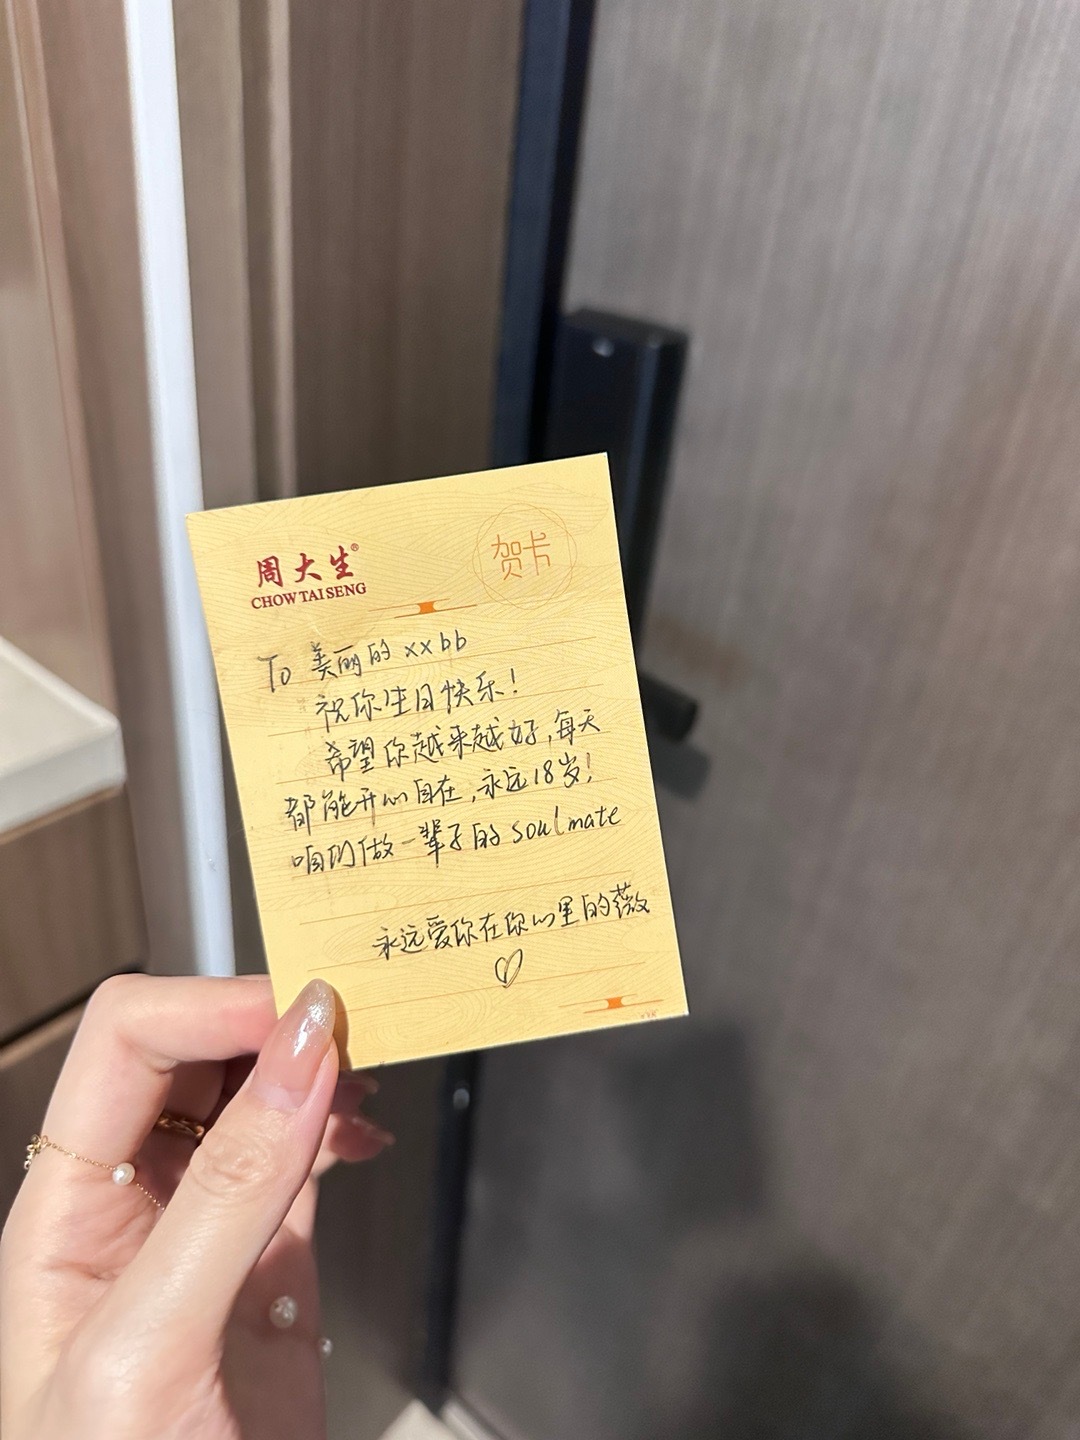 周大生®
CHOW TAI SENG
贺卡
To 美丽的 xxbb
祝你生日快乐！
希望你越来越好，每天
都能开心自在，永远18岁！
咱们做一辈子的 soulmate
永远爱你在你心里的薇
♡